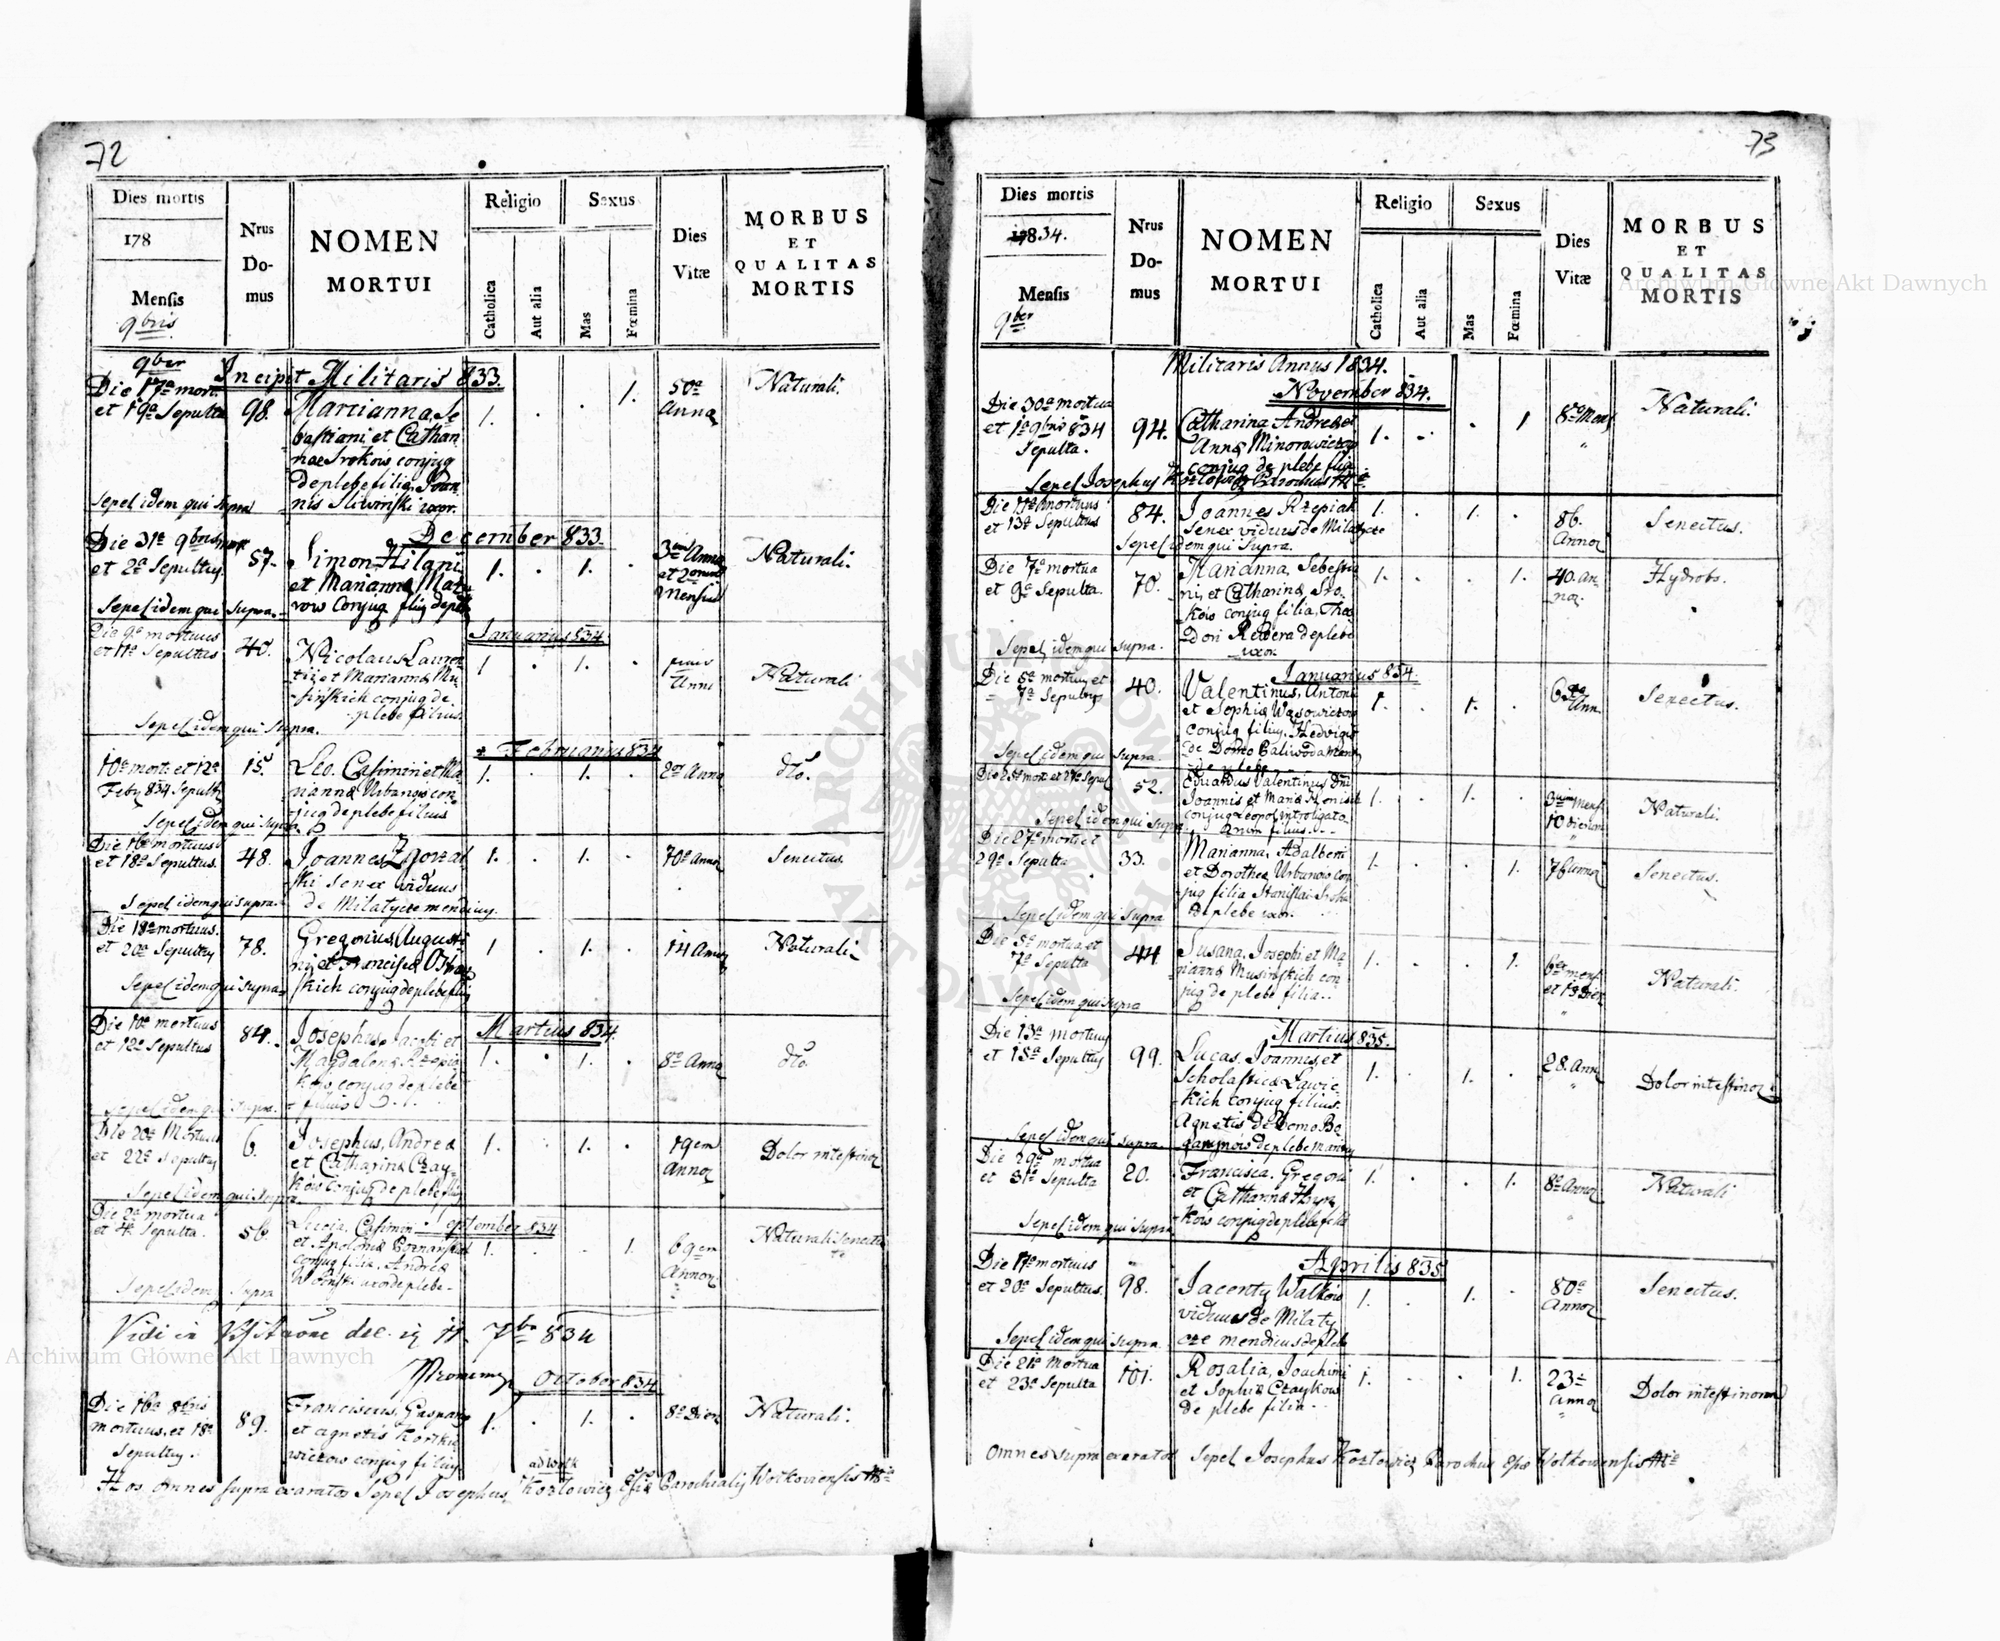 72
Dies mortis
178
Mensis
9bris
Nrus
Do-
mus
NOMEN
MORTUI
Religio
Catholica
Aut alia
Sexus
Mas
Fœmina
Dies
Vitæ
MORBUS
ET
QUALITAS
MORTIS
9ber
Incipit Militaris 833.
Die 17a mort.
et 19a Sepulta
98.
Marianna, Se
bastiani et Cathari
nae Srokow conjug
de plebe filia, Joan
nis Sliwinski uxor.
1.
1.
50a
Annor
Naturali.
Sepel idem qui supra
December 833.
Die 31a 9bris mort
et 2a Sepultus
57.
Simon Hilarii
et Marianna Mazu
row conjug filius de plebe
1.
1.
3um Annor
et 2orum
Mensium
Naturali.
Sepel idem qui supra.
Januarius 834
Die 9a mortuus
et 11a Sepultus
40.
Nicolaus Lauren
tii et Marianna Mu-
sinskich conjug de
plebe filius
1
1.
unius
Anni
Naturali
Sepel idem qui supra.
Februarius 834
10a mort: et 12a
Feby 834 Sepult
15.
Leo. Casimiri et Ma
rianna Urbanow con
jug de plebe filius
1.
1.
2or Annor
dto.
Sepel idem qui supra
Die 16a mortuus
et 18a Sepultus.
48.
Joannes Zgorzal
ski senex viduus
de Milatycze mendicus.
1.
1.
70a Annor
Senectus.
Sepel idem qui supra.
Die 18a mortuus.
et 20a Sepultus
78.
Gregorius, Augusti
ni et Francisca
skich conjug de plebe filius
1
1.
14 Annor
Naturali
Sepel idem qui supra
Martius 834.
Die 10a mortuus
et 12a Sepultus
84.
Josephus, Jacobi et
Magdalena Rzepia
kow conjug de plebe
filius
1.
1.
8a Annor
dto.
Sepel idem qui supra.
Die 20a Mortuus
et 22a Sepultus
6.
Josephus, Andrea
et Catharina Czay-
kow conjug de plebe filius
1.
1.
19em
Annor
Dolor intestinor
Sepel idem qui supra
September 834
Die 2a mortua
et 4a Sepulta.
56.
Lucia, Casimiri
et Apolonia Poznanskich
conjug filia, Andrea
Wolinski uxor de plebe.
1.
1.
69em
Annor.
Naturali senectu
te
Sepel idem supra
Vidi in Visitatione dec. 11 7br 834
October 834
Die 16a 8bris
mortuus, et 18a
Sepultus.
89.
Franciscus, Gaspari
et Agnetis Kortkie
wiczow conjug filius
1.
1.
8a Dier
Naturali.
Hos omnes supra exaratos Sepel Josephus Kozlowicz Eccliae Parochialis Wolkowiensis
73
Dies mortis
17834.
Mensis
9ber
Nrus
Do-
mus
NOMEN
MORTUI
Religio
Catholica
Aut alia
Sexus
Mas
Fœmina
Dies
Vitæ
MORBUS
ET
QUALITAS
MORTIS
Militaris Annus 1834.
November 834.
Die 30a mortua
et 1a 9bris 834
Sepulta.
94.
Catharina Andrea et
Anna Minorowiczow
conjug de plebe filia
1.
1
8 Mens
Naturali.
Sepel Josephus Kozlowicz Parochus
Die 11a mortuus
et 13a Sepultus
84.
Joannes Rzepiak
Senex viduus de Milatycze
1.
1.
86.
Annor
Senectus.
Sepel idem qui supra.
Die 7a mortua
et 9a Sepulta.
70.
Marianna, Sebestia
ni, et Catharina Sro-
kow conjug filia, Theo
dori Rewera de plebe
uxor
1.
1.
40. an
nor.
Hydrobs.
Sepel idem qui supra.
Januarius 834.
Die 5a mortuus et
7a Sepultus
40.
Valentinus, Antoni
et Sophia Wasowiczow
conjug filius, Hedvigis
de Domo Caliwoda
de plebe
1.
1.
Ann.
Senectus.
Sepel idem qui supra.
Die 25a mort: et 27a Sepul
52.
Eduardus Valentinus Dni
Joannis et Maria
conjug Leopol introligato
rum filius.
1.
1.
3um Mens
10 dierum
Naturali.
Sepel idem qui supra
Die 27a mort et
29a Sepulta
33.
Marianna, Adalberti
et Dorothea Urbanow con
jug filia Stanislai Sroka
de plebe uxor.
1.
1.
76 annor
Senectus.
Sepel idem qui supra
Die 5a mortua et
7a Sepulta
44
Susana, Josephi et Ma
rianna Musinskich con
jug de plebe filia.
1.
1.
6er mens
et 13 Dier
Naturali.
Sepel idem qui supra
Martius 835.
Die 13a mortuus
et 15a Sepultus
99.
Lucas, Joannis et
Scholastica Lawic
kich conjug filius.
Agnetis de Domo Bo
de plebe maritus
1.
1.
28. Ann
Dolor intestinor
Sepel idem qui supra
Die 29a mortua
et 31a Sepulta
20.
Francisca, Gregorii
et Catharina
kow conjug de plebe filia
1.
1.
8a Annor
Naturali
Sepel idem qui supra
Aprilis 835
Die 17a mortuus
et 20a Sepultus.
98.
Jacenty Walkow
viduus de Milaty
cze mendicus de plebe
1.
1.
80a
Annor
Senectus.
Sepel idem qui supra.
Die 21a Mortua
et 23a Sepulta
101.
Rosalia, Joachimi
et Sophia Czaykow
de plebe filia
1.
1.
23a
Annor
Dolor intestinorum
Omnes supra exaratos Sepel Josephus Kozlowicz Parochus Wolkowiensis
Archiwum Główne Akt Dawnych
Archiwum Główne Akt Dawnych
ARCHIWUM GŁÓWNE AKT DAWNYCH